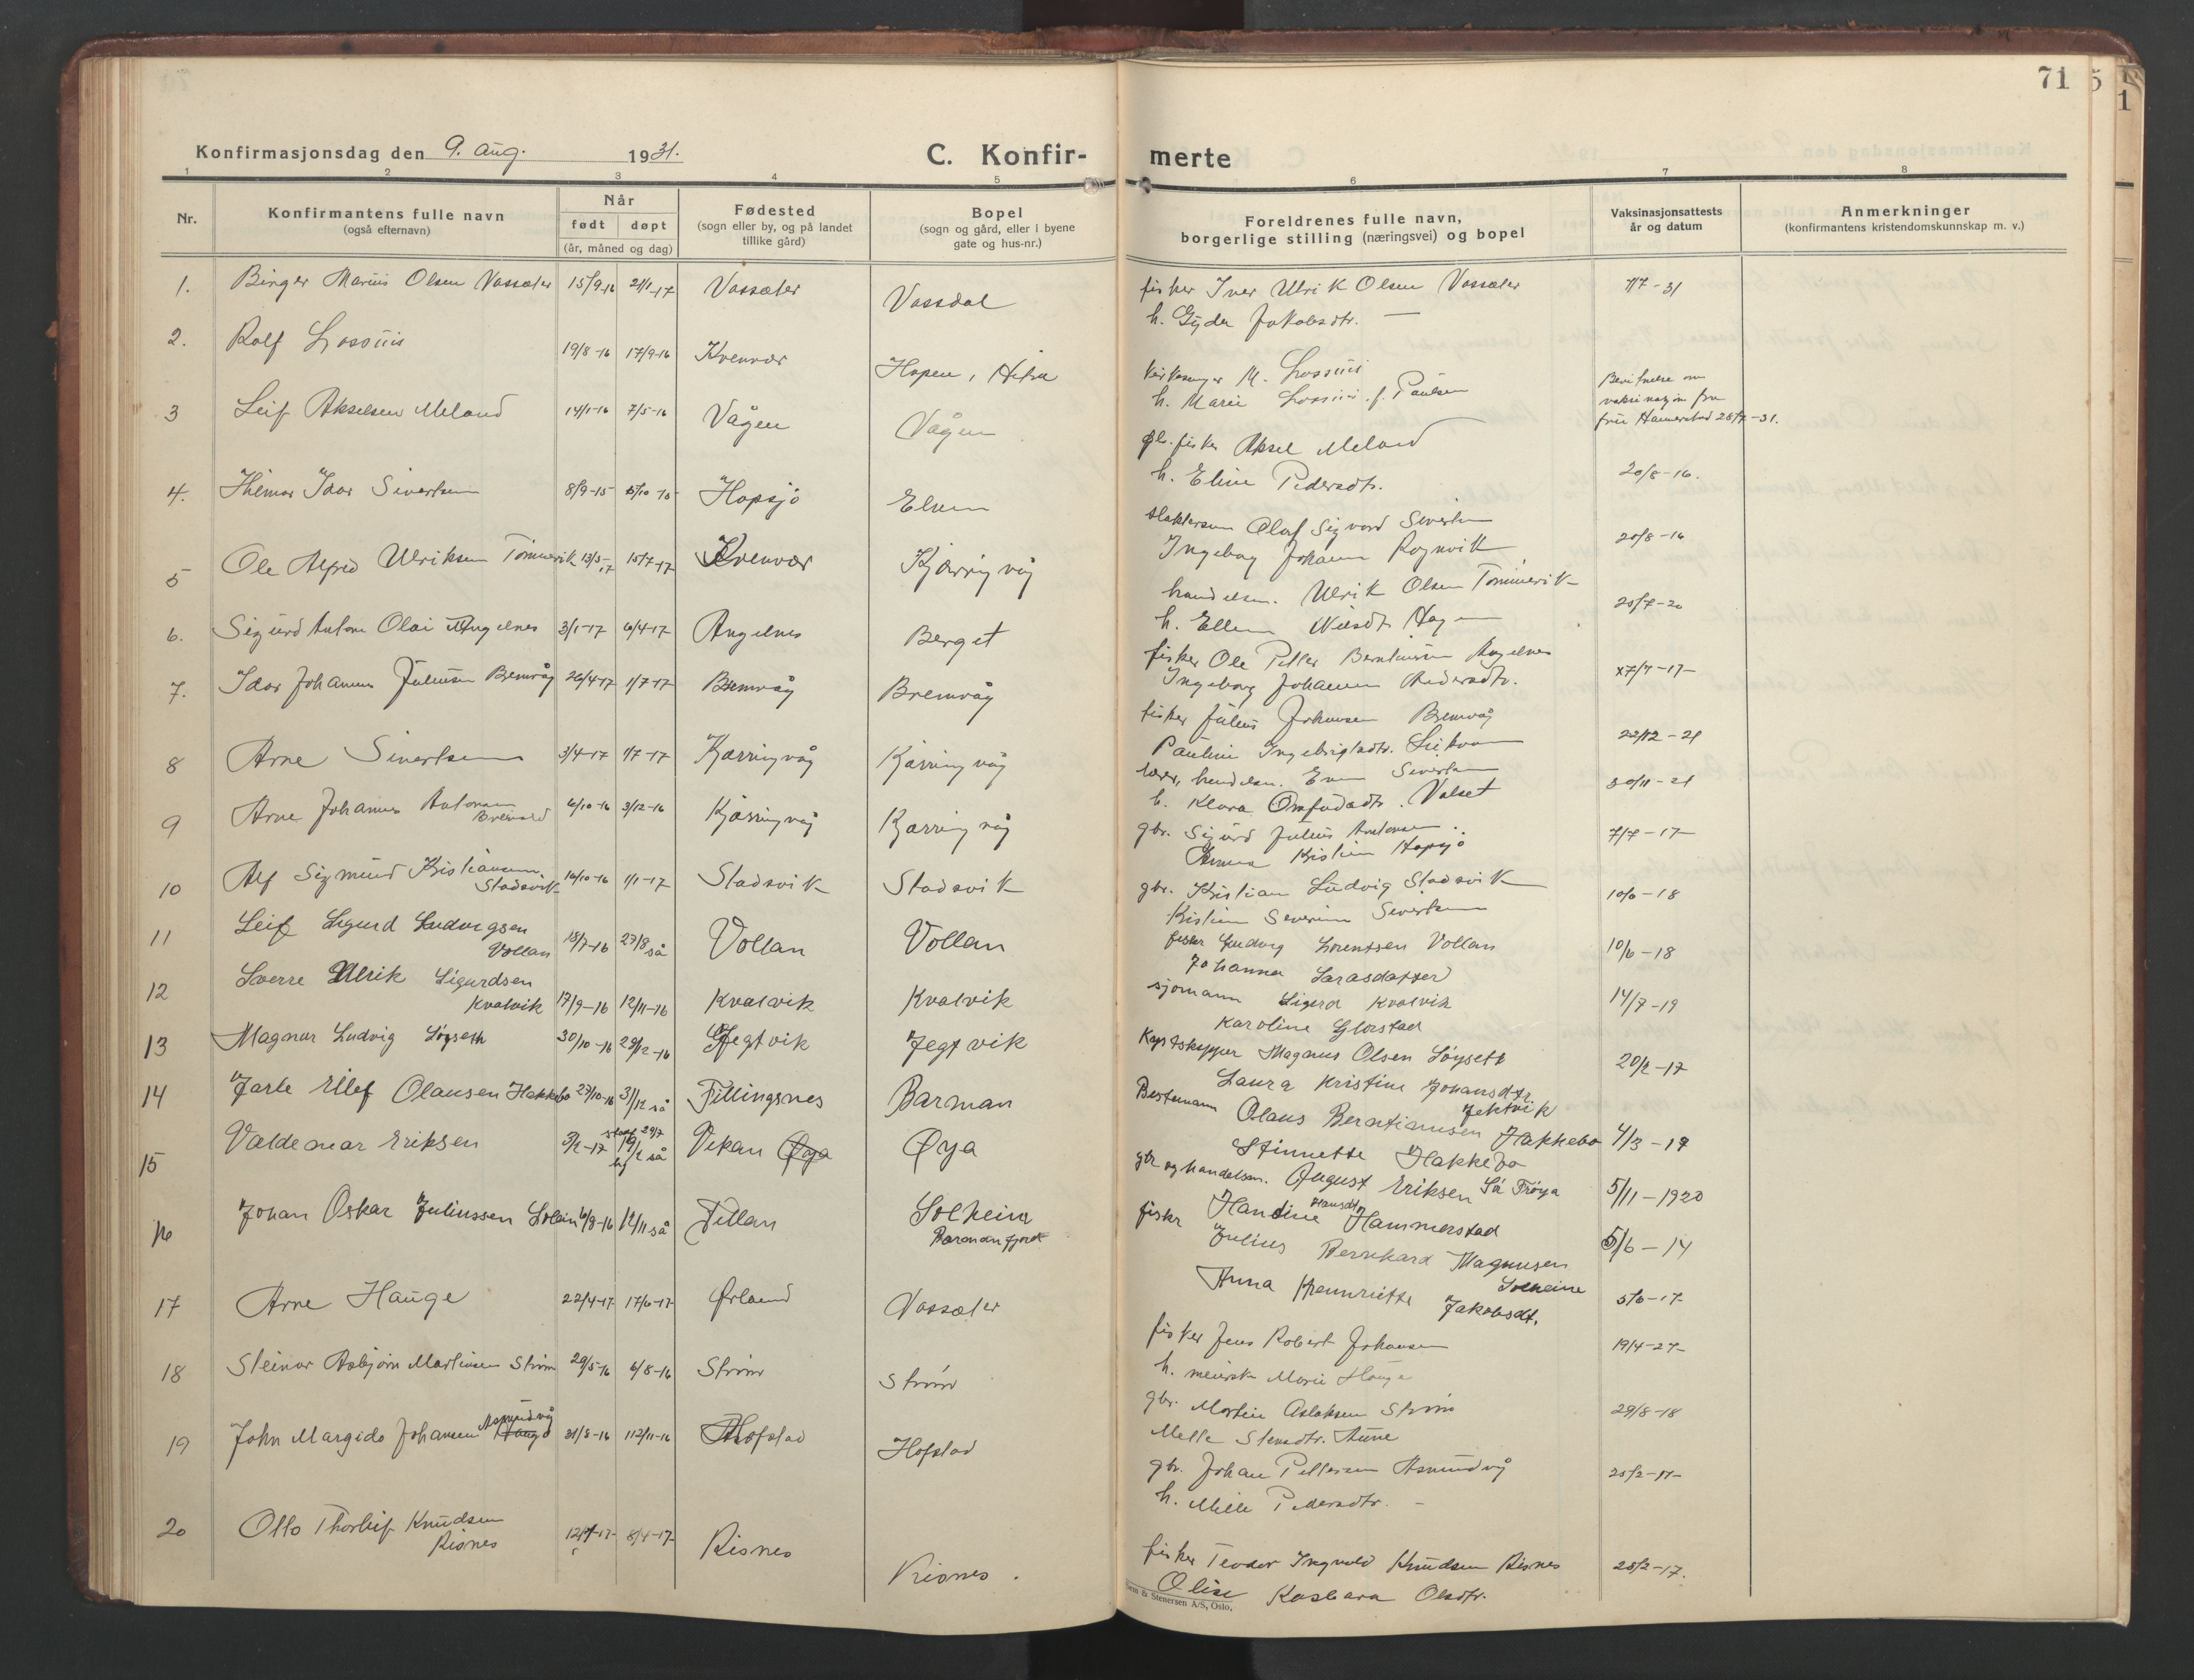 71
Konfirmasjonsdag den 9. aug. 1931.
C. Konfir-
merte
1 2 3 4 5 6 7 8
Nr.
Konfirmantens fulle navn
(også efternavn)
Når
født døpt
(år, måned og dag)
Fødested
(sogn eller by, og på landet
tillike gård)
Bopel
(sogn og gård, eller i byene
gate og hus-nr.)
Foreldrenes fulle navn,
borgerlige stilling (næringsvei) og bopel
Vaksinasjonsattests
år og datum
Anmerkninger
(konfirmantens kristendomskunnskap m. v.)
1. Birger Marius Olsen Vassæter 15/9-16 21/1-17 Vassæter Vassdal
fisker Iver Ulrik Olsen Vassæter 7/7-31
h. Gyda Jakobsdtr. —
2. Rolf Lossius 19/8-16 17/9-16 Kvenvær Hopen, Hitra
Kirkesanger M. Lossius
h. Marie Lossius f. Paulsen
Bevitnelse om
vaksinasjon fra
frü Hamerstad 28/7-31.
3 Leif Akselsen Meland 14/1-16 7/5-16 Vågen Vågen
fisker Aksel Meland
h. Eline Pedersdtr. 20/8-16.
4. Hilmar Idar Sivertsen 8/9-15 Hopsjö Elven
Olaf Sigvard Sivertsen
Ingeborg Johanna Rognvik 20/8-16
5 Ole Alfred Ulriksen Tömmervik 13/5-17 15/7-17 Kvenvær Kjærringvåg
handelsm. Ulrik Olsen Tömmervik
h. Ellen Hagen 20/7-20
6. Sigurd Anton Olai Angelnes 3/1-17 6/4-17 Angelnes Berget
fisker Ole Petter Berntinsen Angelnes
Ingeborg Johanna Pedersdtr. 27/7-17
7. Idar Johannes Juliusen Bremvåg 26/4-17 1/7-17 Bremvåg Bremvåg
fisker Julius Johansen Bremvåg
Pauline Ingebrigtsdtr. 22/12-21
8 Arne Sivertsen 3/4-17 1/7-17 Kjærringvåg Kjærringvåg
lærer, handelsm. Even Sivertsen
h. Klara Valset 30/11-21
9 Arne Johannes Antonsen
Brevard 6/10-16 3/12-16 Kjærringvåg Kjærringvåg
gbr. Sigurd Julius Antonsen
Anna Kristine Hopsjö 7/7-17
10 Alf Sigmund Kristiansen
Stadsvik 16/10-16 1/1-17 Stadsvik Stadsvik
gbr. Kristian Ludvig Stadsvik
Kristine Severine Sivertsen 10/6-18
11 Leif Sigurd Ludvigsen
Vollan 18/7-16 27/8 så Vollan Vollan
fisker Ludvig Lorentsen Vollan 10/6-18
Johanna Larsdatter
12 Sverre Ulrik Sigurdsen
Kvalvik 17/9-16 12/11-16 Kvalvik Kvalvik
sjømann Sigurd Kvalvik 14/7-19
Karoline Glørstad
13 Magnar Ludvig Løyseth 30/10-16 28/12-16 Jegtvik Jegtvik
Magnus Olsen Løyseth 20/2-17
Laura Kristine Johansdtr.
Jektvik
14 Jarle Ellef Olausen Hakkebo 27/10-16 31/12 så Fillingsnes Barman
Bestemann Olaus Berntiansen Hakkebo 4/3-17
Stinnette Hakkebo
15 Valdemar Eriksen 3/2-17 Vikan Øya Øya
gbr og handelsm. August Eriksen Sö Frøya 5/11-1920
Handine Hansdtr Hammerstad
16 Johan Oskar Juliussen Solheim 6/8-16 12/11 så Fillan Solheim
Barmanfjord
fisker Julius Bernhard Magnusen
Solheim 5/6-14
Anna Hennriette Jakobsdt.
17 Arne Hauge 22/4-17 17/6-17 Ørland Vassæter 5/6-17
fisker Jens Robert Johansen
h. Marie Hauge
18 Steinar Asbjörn Martinsen Ström 29/5-16 6/8-16 Ström Ström 19/4-27
gbr. Martin Aslaksen Ström
Mette Stensdtr. Aune 29/8-18
19 John Margido Johansen Asmundvåg 31/8-16 12/11-16 Hofstad Hofstad
gbr. Johan Pettersen Asmundvåg 25/2-17
h. Mille Pedersdtr. –
20 Otto Thorleif Knudsen
Risnes 8/4-17 Risnes Risnes.
fisker Teodor Ingvald Knudsen Risnes 28/2-17.
Olise Kasbara Olsdtr.
& Stenersen A/S, Oslo.